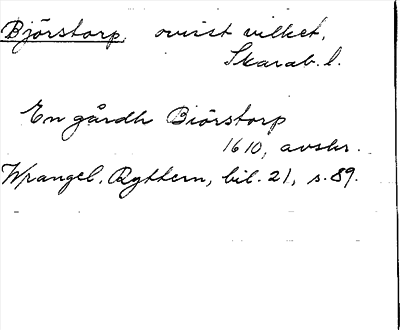 Björstorp, ovisst vilket,
Skarab. l.
En gårdh Biörstorp
1610, avskr.
Wrangel, Ryttern, bil. 21, s. 89.